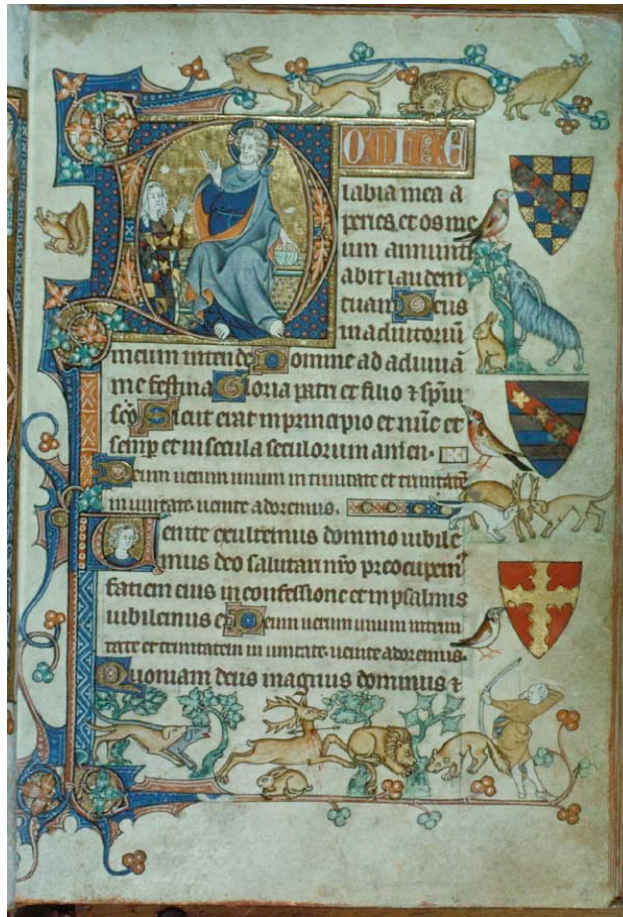 DOMINE
labia mea a
peries et os me
um annunti
abit laudem
tuam Deus
in adiutoriū
meum intende Domine ad adiuuā
me festina Gloria patri et filio ⁊ spīui
scō Sicut erat in principio et nūc et
semp et in secula seculorum amen.
Deum uerum unum in trinitate et trinitatē
in unitate. uenite adoremus.
Uenite exultemus domino iubile
mus deo salutari nr̄o preocupem
faciem eius in confessione et in psalmis
iubilemus ei Deum uerum unum in trini
tate et trinitatem in unitate. uenite adoremus.
Quoniam deus magnus dominus ⁊